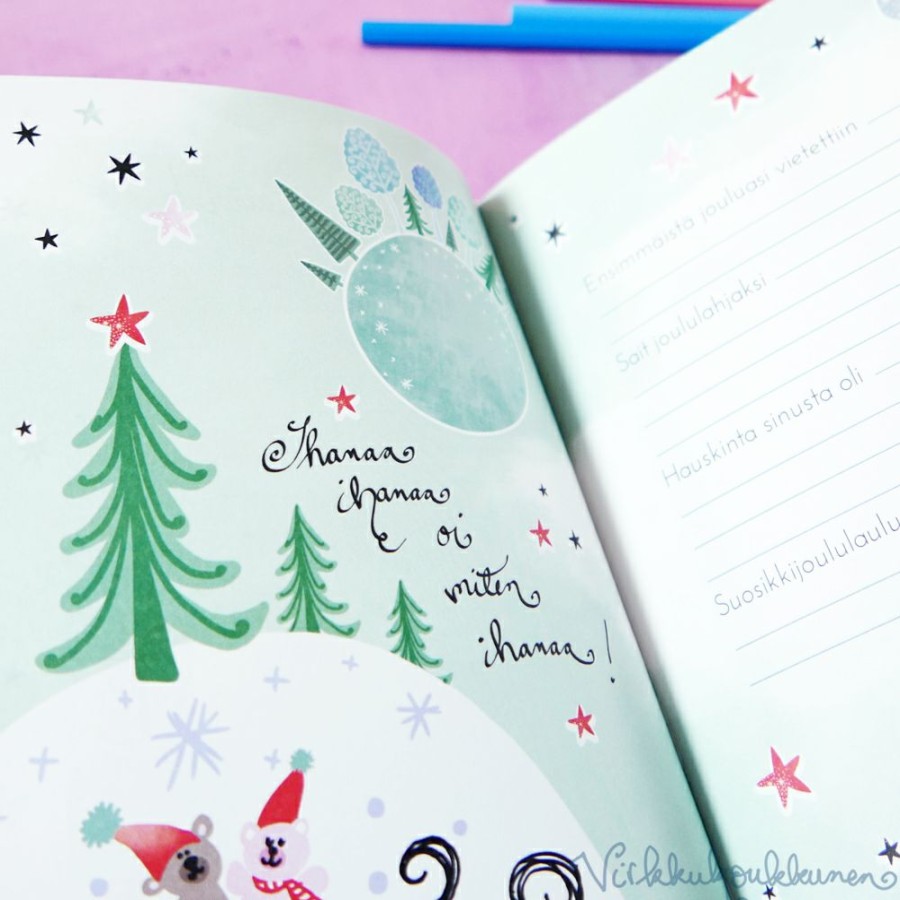 Ihanaa
ihanaa
oi
miten
ihanaa!
Ensimmäistä jouluasi vietettiin
Sait joululahjaksi
Hauskinta sinusta oli
Suosikkijoululaulu